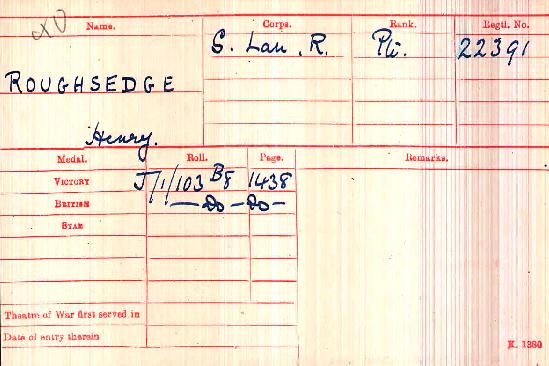 Name. Corps. Rank. Regtl. No.
S. Lan. R. Pte. 22391
ROUGHSEDGE
Henry.
Medal. Roll. Page. Remarks.
VICTORY J/1/103 B8 1438
BRITISH — Do — Do —
STAR
Theatre of War first served in
Date of entry therein
K. 1380